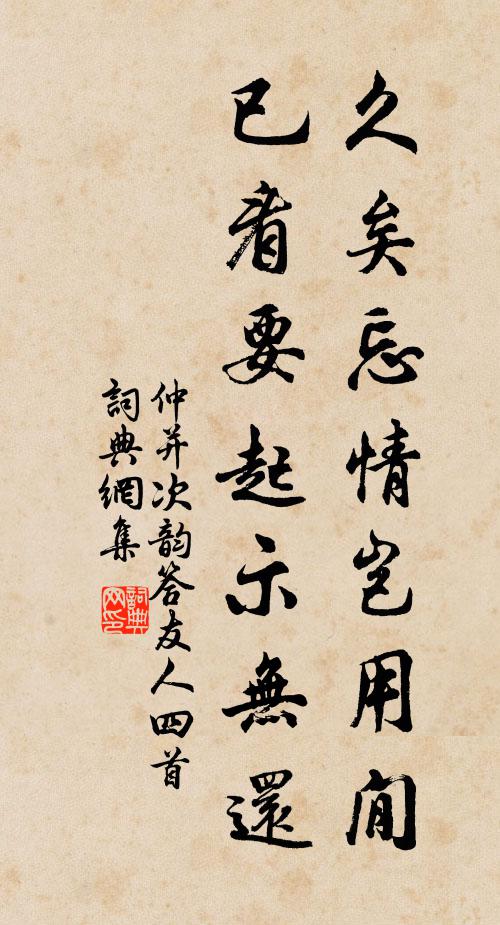 久矣忘情岂用閒
已看要起示無還
仲并次韵答友人四首
詞典網集
詞典网印